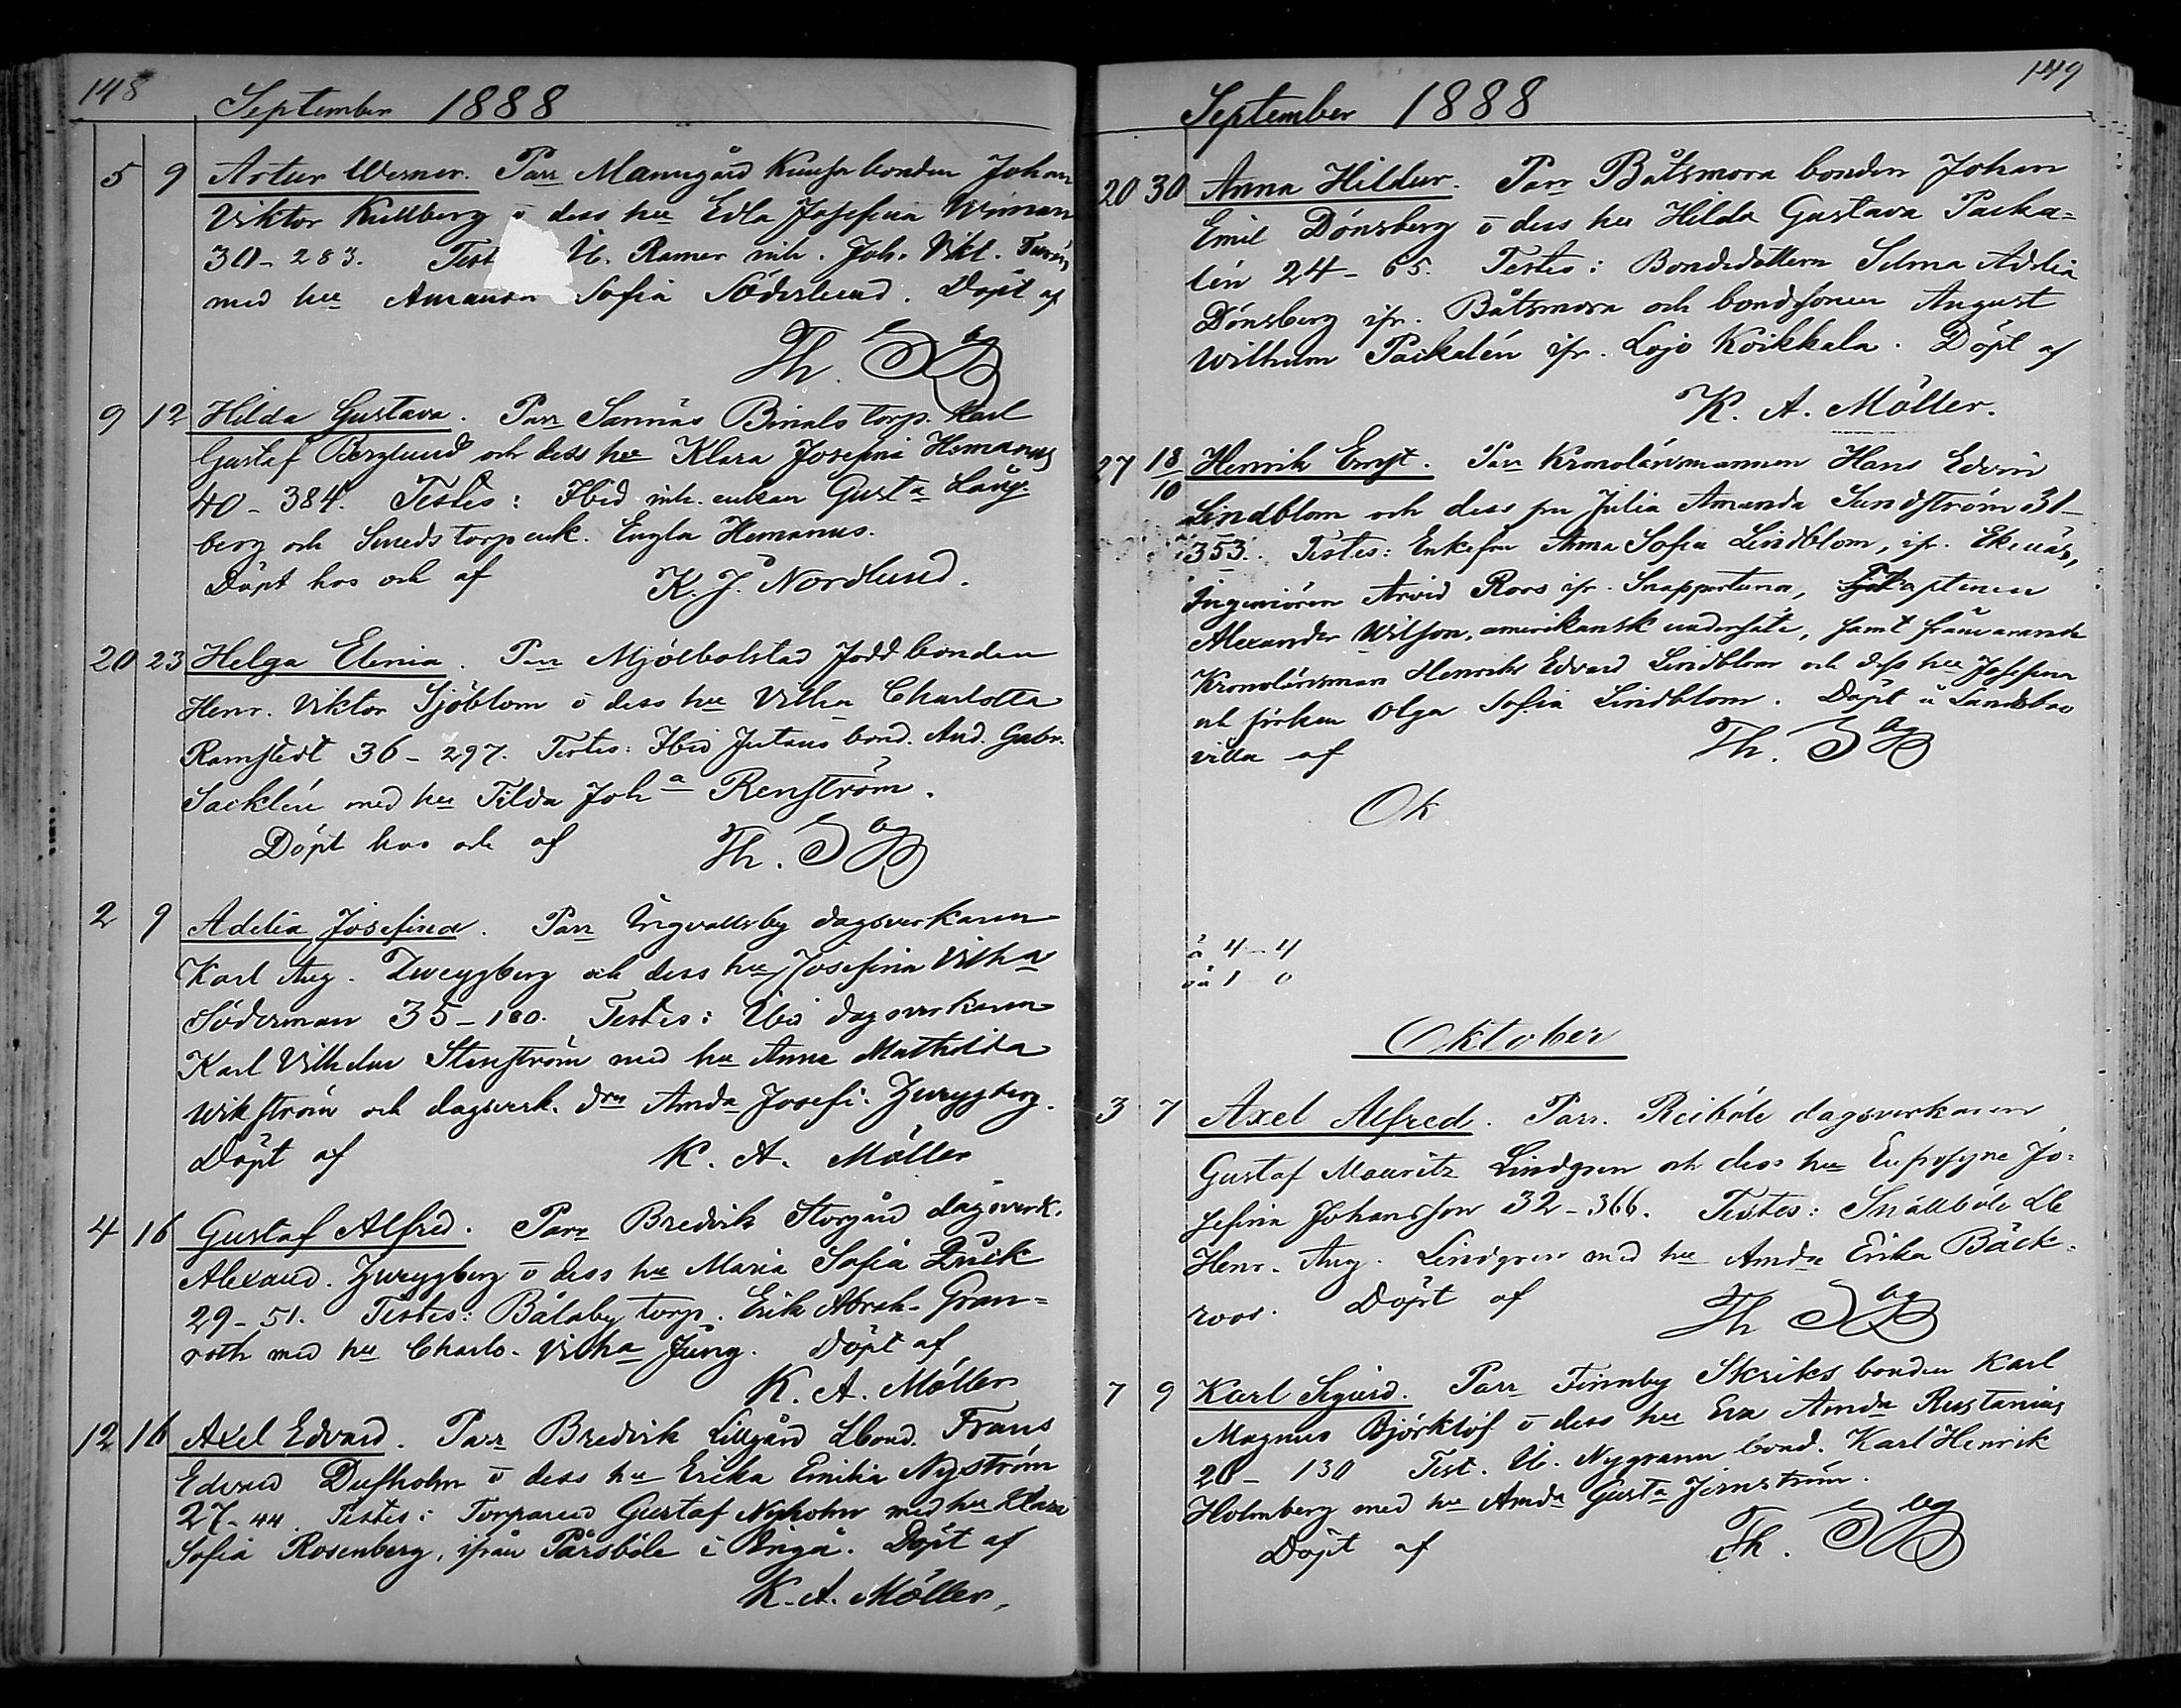 148
September 1888
5 9 Artur Werner. Parr Manngård Kunsa bonden Johan
Viktor Kullberg o dess hu Edla Josefina Wiman
30-283. Test Ramer inh. Joh. Vikt.
med hu Amanda Sofia Söderlund. Döpt af
Th.
9 12 Hilda Gustava. Parr Sannäs Binals torp. Karl
Gustaf Berglund och dess hu Klara Josefina Hemanus
40-384. Testes: Ibid inh. enkan Gusta Lång-
berg och Smeds torp enk. Engla Hemanus.
Döpt hos och af K. J. Nordlund.
20 23 Helga Elenia. Parr Mjölbolstad Jodd bonden
Henr. Viktor Sjöblom o dess hu Vilha Charlotta
Ramstedt 36-297. Testes: Ibid Jutans bond. And. Gabr.
Sacklén med hu Tilda Joha Renström.
Döpt hos och af Th.
2 9 Adelia Josefina. Parr Ingvallsby dagsverkaren
Karl Aug. Zweygberg och dess hu Josefina Vilha
Söderman 35-180. Testes: Ibid dagsverkaren
Karl Vilhelm Stenström med hu Anna Mathilda
Wikström och dagsverk. drn Amda Josefi. Zweygberg.
Döpt af K. A. Möller
4 16 Gustaf Alfred. Parr Bredvik Storgård dagsverk.
Alexand. Zweygberg o dess hu Maria Sofia
29-51. Testes: Bålaby torp. Erik Abrah. Gran-
roth med hu Charlo. Vilha Ljung. Döpt af
K. A. Möller
12 16 Axel Edvard. Parr Bredvik Lillgård Lbond. Frans
Edvard Dufholm o dess hu Erika Emilia Nyström
27-44. Testes: Torparen Gustaf Nyholm med hu Klara
Sofia Rosenberg, ifrån Pårsböle i Ingå. Döpt af
K. A. Möller.
149
September 1888
20 30 Anna Hildur. Parr Båtsmora bonden Johan
Emil Dönsberg o dess hu Hilda Gustava Packa-
lén 24-65. Testes: Bondedottern Selma Adelia
Dönsberg ifr. Båtsmora och bondsonen August
Wilhelm Packalén ifr. Lojo Koikkala. Döpt af
K. A. Möller.
27 18/10 Henrik Ernst. Parr Kronolänsmannen Hans Edvin
Lindblom och dess fru Julia Amanda Sundström 31-
353. Testes: Enkefru Anna Sofia Lindblom, ifr. Ekenäs,
Ingeniören Arvid Roos ifr. Snappertuna, Sjökaptenen
Alexander Wilson, amerikansk undersåte, samt frånvarande
Kronolänsman Henrik Edvard Lindblom och dess hu Josefina
och fröken Olga Sofia Lindblom. Döpt å Sandsbac
villa af Th.
Ok
ä 4-4
oä 1 0
Oktober
3 7 Axel Alfred. Parr. Reiböle dagsverkaren
Gustaf Mauritz Lindgren och dess hu Eufrosyne Jo-
sefina Johansson 32-366. Testes: Snällböle Lb
Henr. Aug. Lindgren med hu Amda Erika Bäck-
roos. Döpt af Th
7 9 Karl Sigurd. Parr Finnby Skriks bonden Karl
Magnus Björklöf o dess hu Eva Amda Rustanius
26-130 Test. Ib. Nygrann bond. Karl Henrik
Holmberg med hu Amda Gusta Jernström.
Döpt af Th.